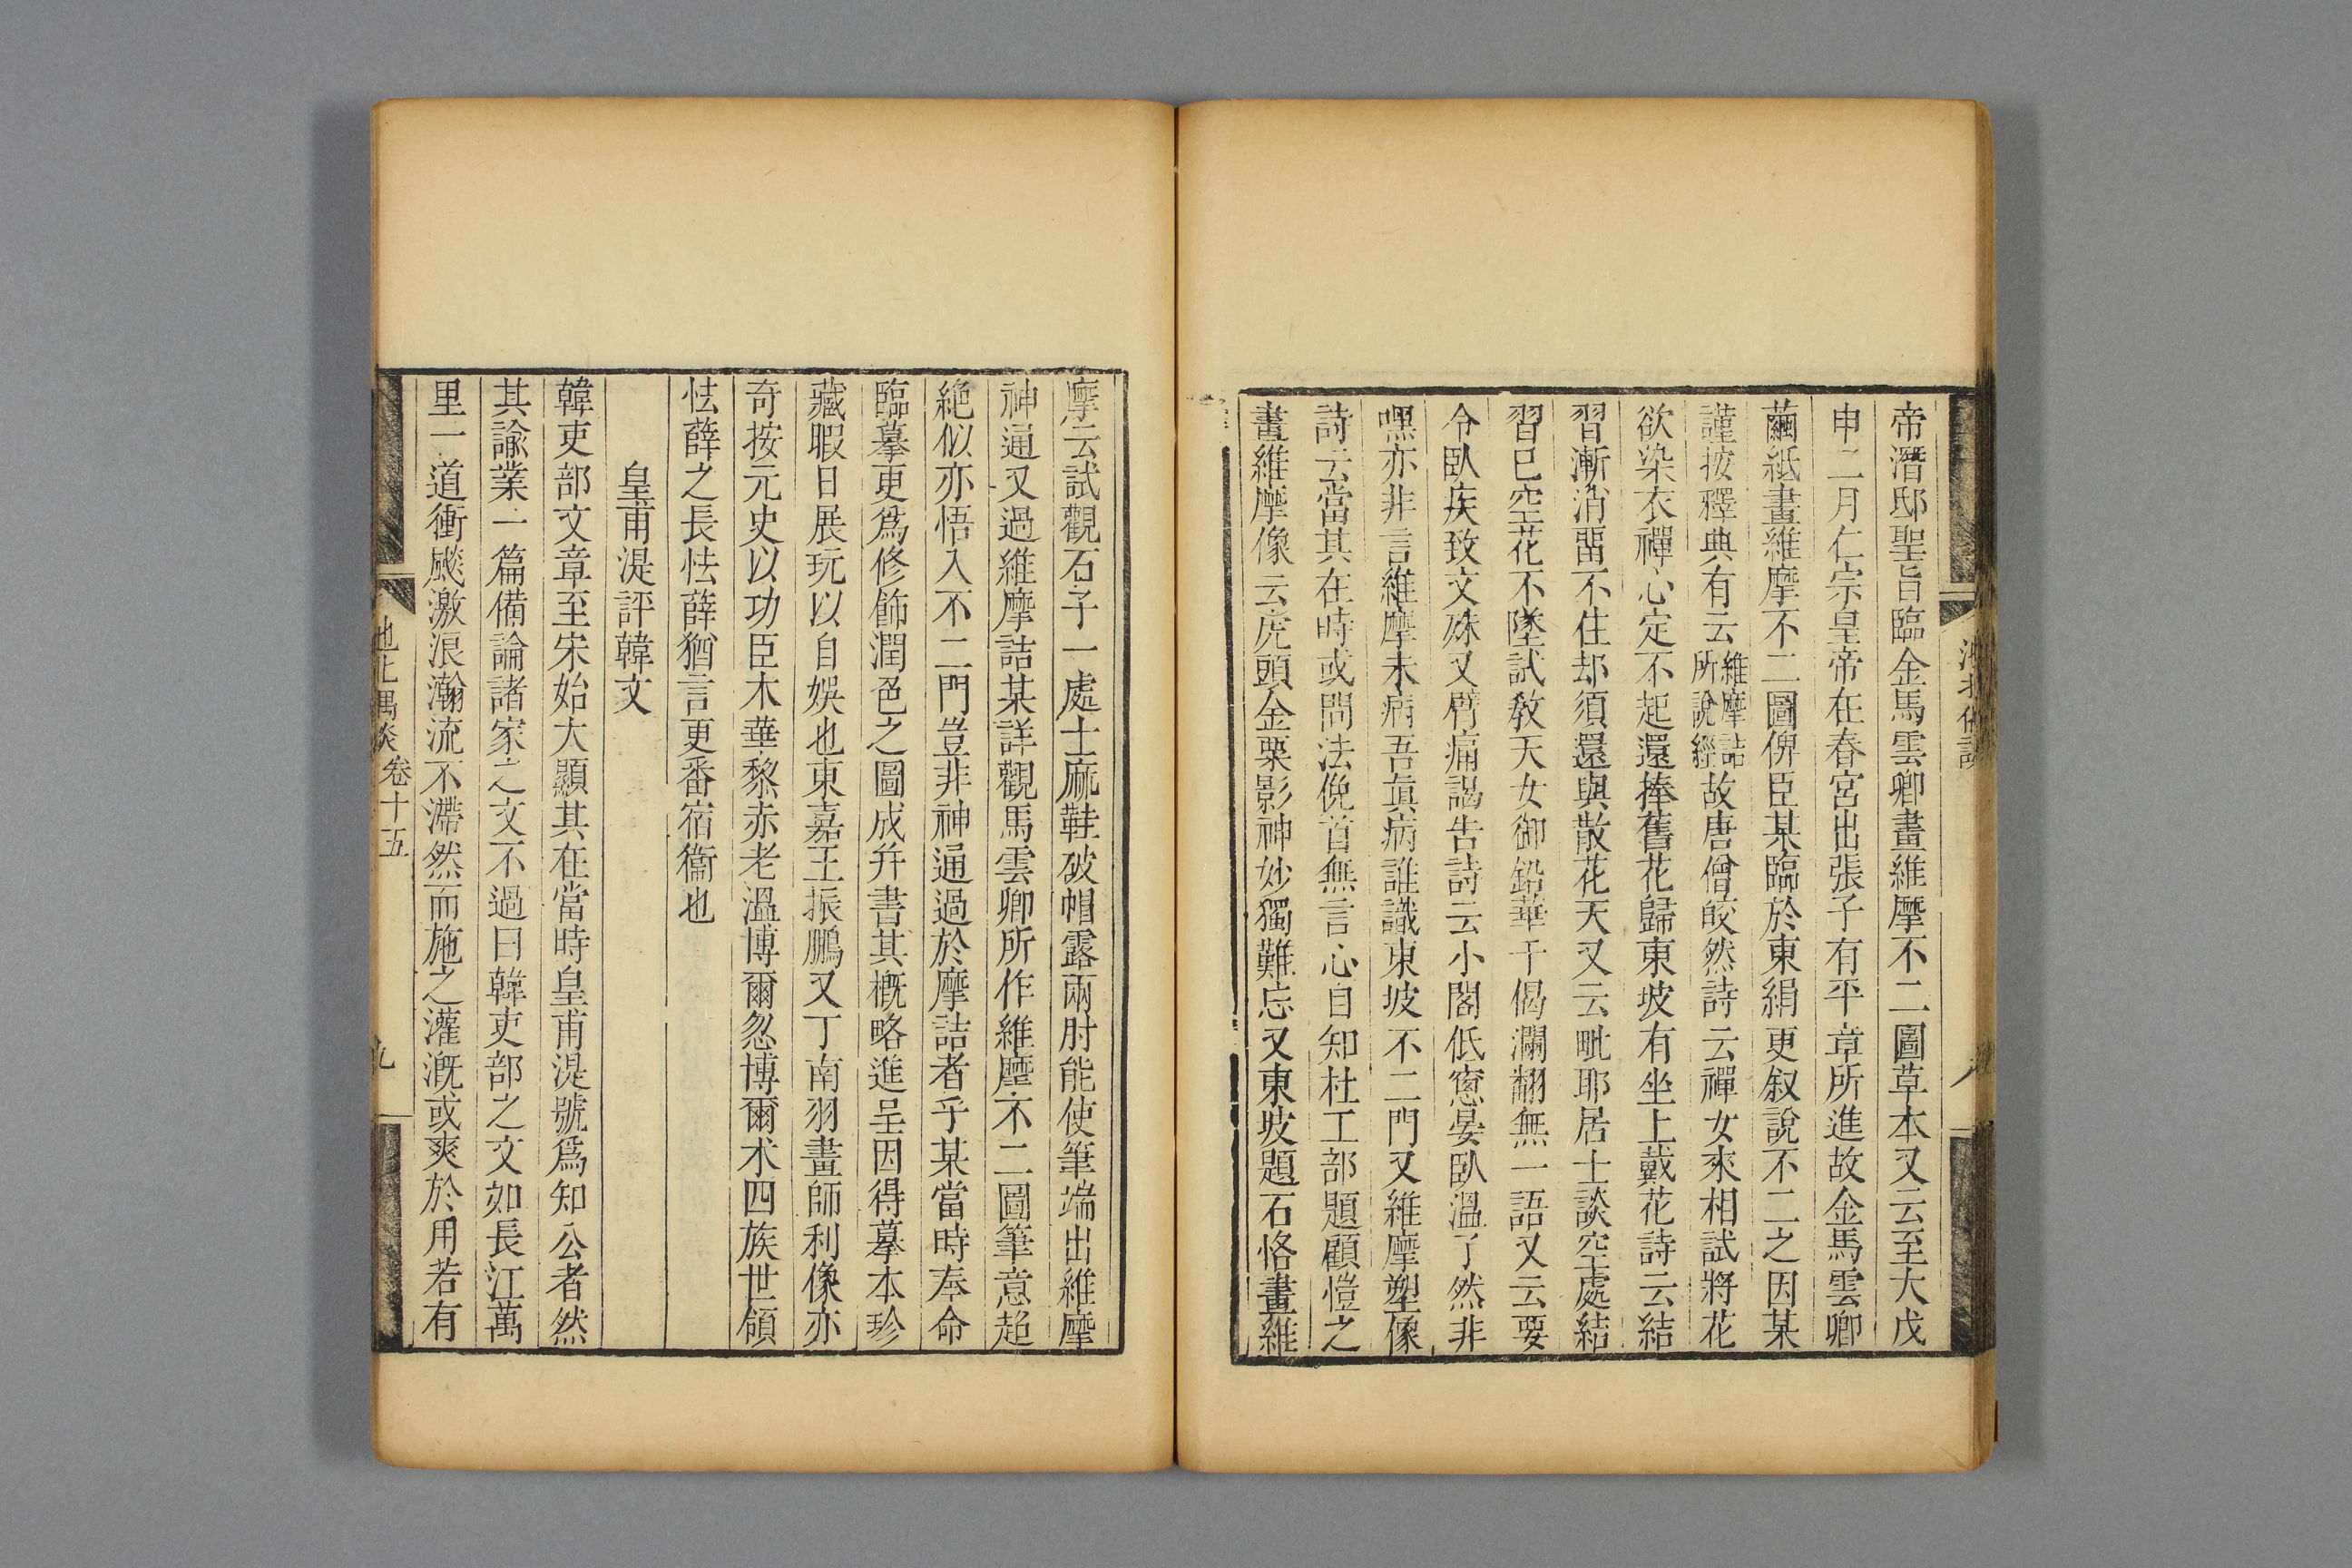 帝潛邸聖旨臨金馬雲卿畫維摩不二圖草本又云至大戊
申二月仁宗皇帝在春宮出張子有平章所進故金馬雲卿
繭紙畫維摩不二圖俾臣某臨於東絹更叙說不二之因某
謹按釋典有云維摩詰所說經故唐僧皎然詩云禪女來相試將花
欲染衣禪心定不起還捧舊花歸東坡有坐上戴花詩云結
習漸消畱不住却須還與散花天又云毗耶居士談空處結
習已空花不墜試敎天女御鉛華千偈瀾翻無一語又云要
令臥疾致文殊又臂痛謁告詩云小閣低窻晏臥溫了然非
嘿亦非言維摩未病吾眞病誰識東坡不二門又維摩塑像
詩云當其在時或問法俛首無言心自知杜工部題顧愷之
畫維摩像云虎頭金粟影神妙獨難忘又東坡題石恪畫維
摩云試觀石子一處士麻鞋破帽露兩肘能使筆端出維摩
神通又過維摩詰某詳觀馬雲卿所作維摩不二圖筆意超
絶似亦悟入不二門豈非神通過於摩詰者乎某當時奉命
臨摹更爲修飾潤色之圖成幷書其槪略進呈因得摹本珍
藏暇日展玩以自娛也東嘉王振鵬又丁南羽畫師利像亦
奇按元史以功臣木華黎赤老溫博爾忽博爾朮四族世領
怯薛之長怯薛猶言更番宿衞也
皇甫湜評韓文
韓吏部文章至宋始大顯其在當時皇甫湜號爲知公者然
其諭業一篇備論諸家之文不過曰韓吏部之文如長江萬
里一道衝飇激浪瀚流不滯然而施之灌漑或爽於用若有
池北偶談卷十五
九